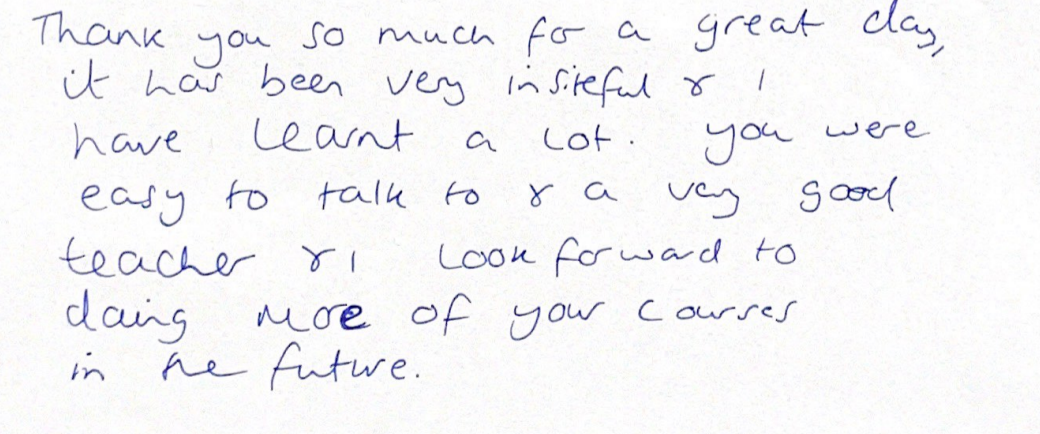 Thank you so much for a great day,
it has been very insiteful & I
have learnt a lot. you were
easy to talk to & a very good
teacher & I look forward to
doing more of your courses
in the future.